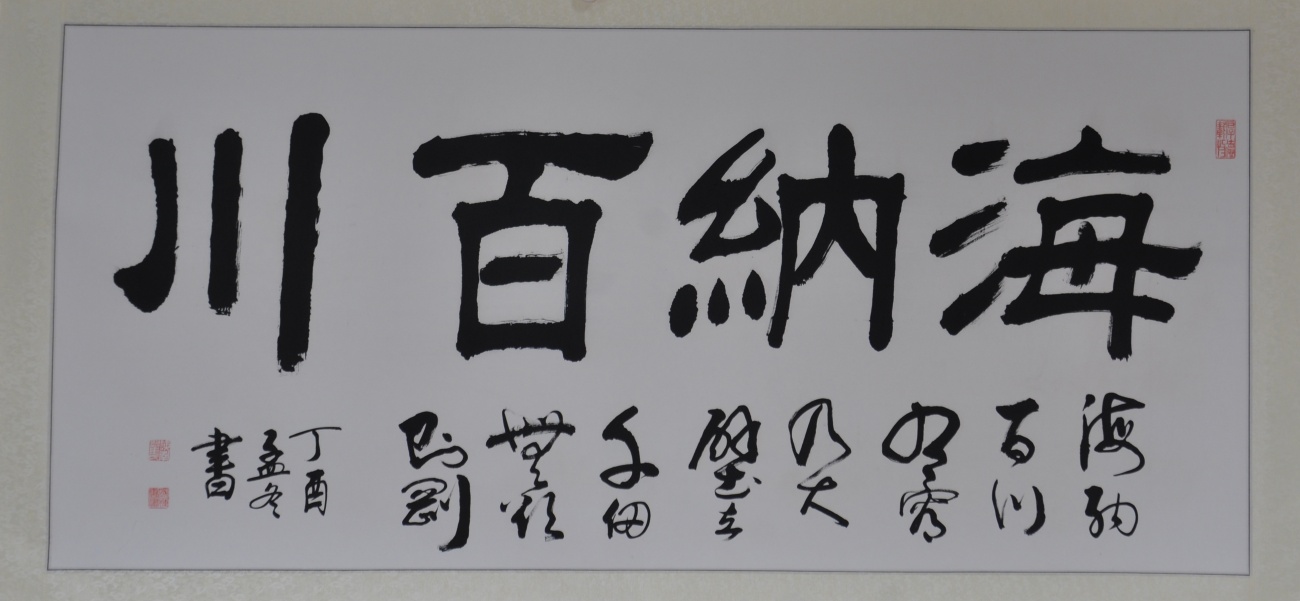 海納百川
海納
百川
有容
乃大
壁立
千仞
無欲
則剛
丁酉
孟冬
書